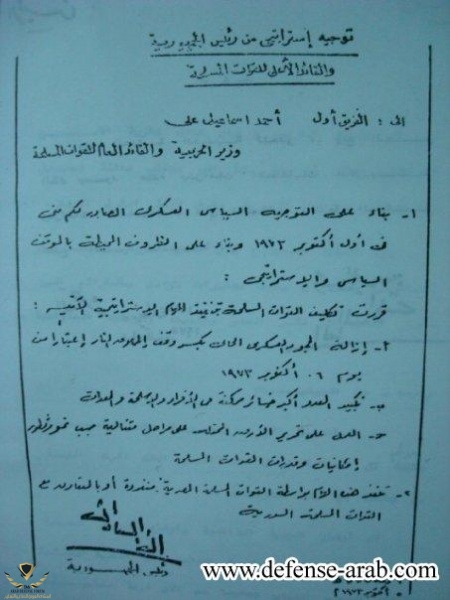 توجيه إستراتيجى من رئيس الجمهورية
والقائد الأعلى للقوات المسلحة
الى : الفريق أول أحمد اسماعيل على
وزير الحربية والقائد العام للقوات المسلحة
١- بناء على التوجيه السياسى العسكرى الصادر لكم منى
فى أول أكتوبر ١٩٧٣ وبناء على الظروف المحيطة بالموقف
السياسى والاستراتيجى :
قررت تكليف القوات المسلحة بتنفيذ المهام الاستراتيجية الآتية :
أ- إزالة الجمود العسكرى الحالى بكسر وقف إطلاق النار إعتباراً من
يوم ٦ أكتوبر ١٩٧٣
ب- تكبيد العدو أكبر خسائر ممكنة فى الأفراد والأسلحة والمعدات
ج- العمل على تحرير الأرض المحتلة على مراحل متتالية حسب نمو وتطور
إمكانيات وقدرات القوات المسلحة
٢- تنفذ هذه المهام بواسطة القوات المسلحة المصرية منفردة أو بالتعاون مع
القوات المسلحة السورية
أنور السادات
رئيس الجمهورية
أكتوبر ١٩٧٣
www.defense-arab.com